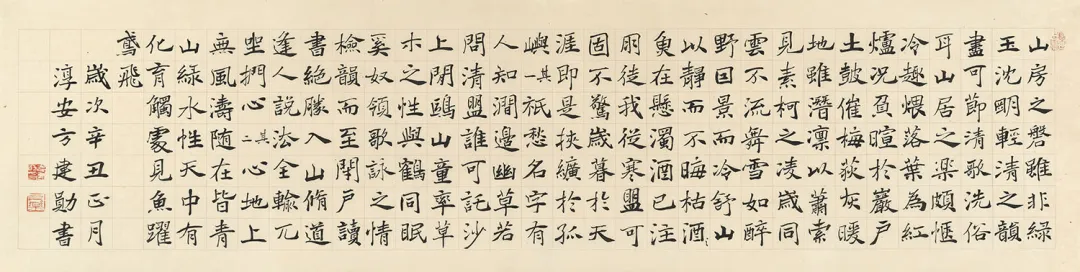 山房之磬雖非綠
玉沈明輕清之韻
盡可節清歌洗俗
耳山居之樂頗愜
冷趣煨落葉為紅
爐況負暄於巖戶
土鼓催梅荻灰暖
地雖潛凜以蕭索
見素柯之凌歲同
雲不流舞雪如醉
野因景而冷舒山
以靜而不晦枯酒
魚在懸濁酒已注
朋徒我從寒盟可
固不驚歲暮於天
涯即是挾纊於孤
嶼其一祇愁名字有
人知澗邊幽草若
問清盟誰可託沙
上閒鷗山童率草
木之性與鶴同眠
奚奴領歌詠之情
檢韻而至閉戶讀
書絕勝入山脩道
逢人說法全輸兀
坐捫心其二心地上
無風濤隨在皆青
山綠水性天中有
化育觸處見魚躍
鳶飛
歲次辛丑正月
淳安方建勛書